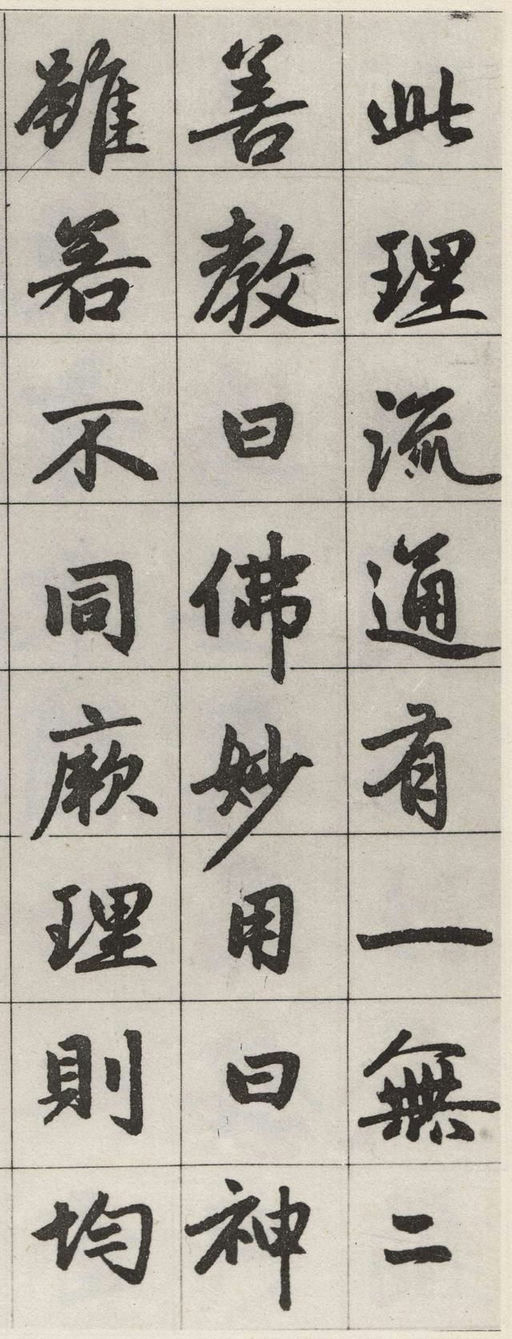 此理流通有一無二
善教曰佛妙用曰神
雖若不同厥理則均